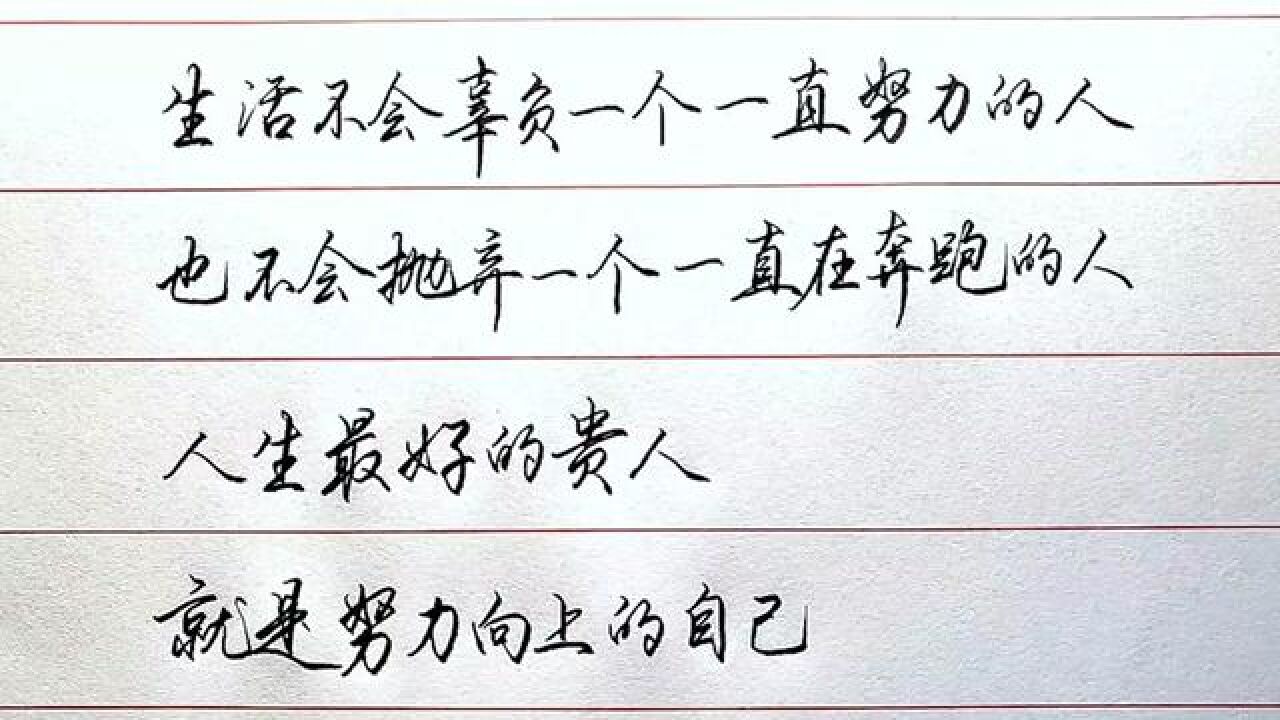 生活不会辜负一个一直努力的人
也不会抛弃一个一直在奔跑的人
人生最好的贵人
就是努力向上的自己